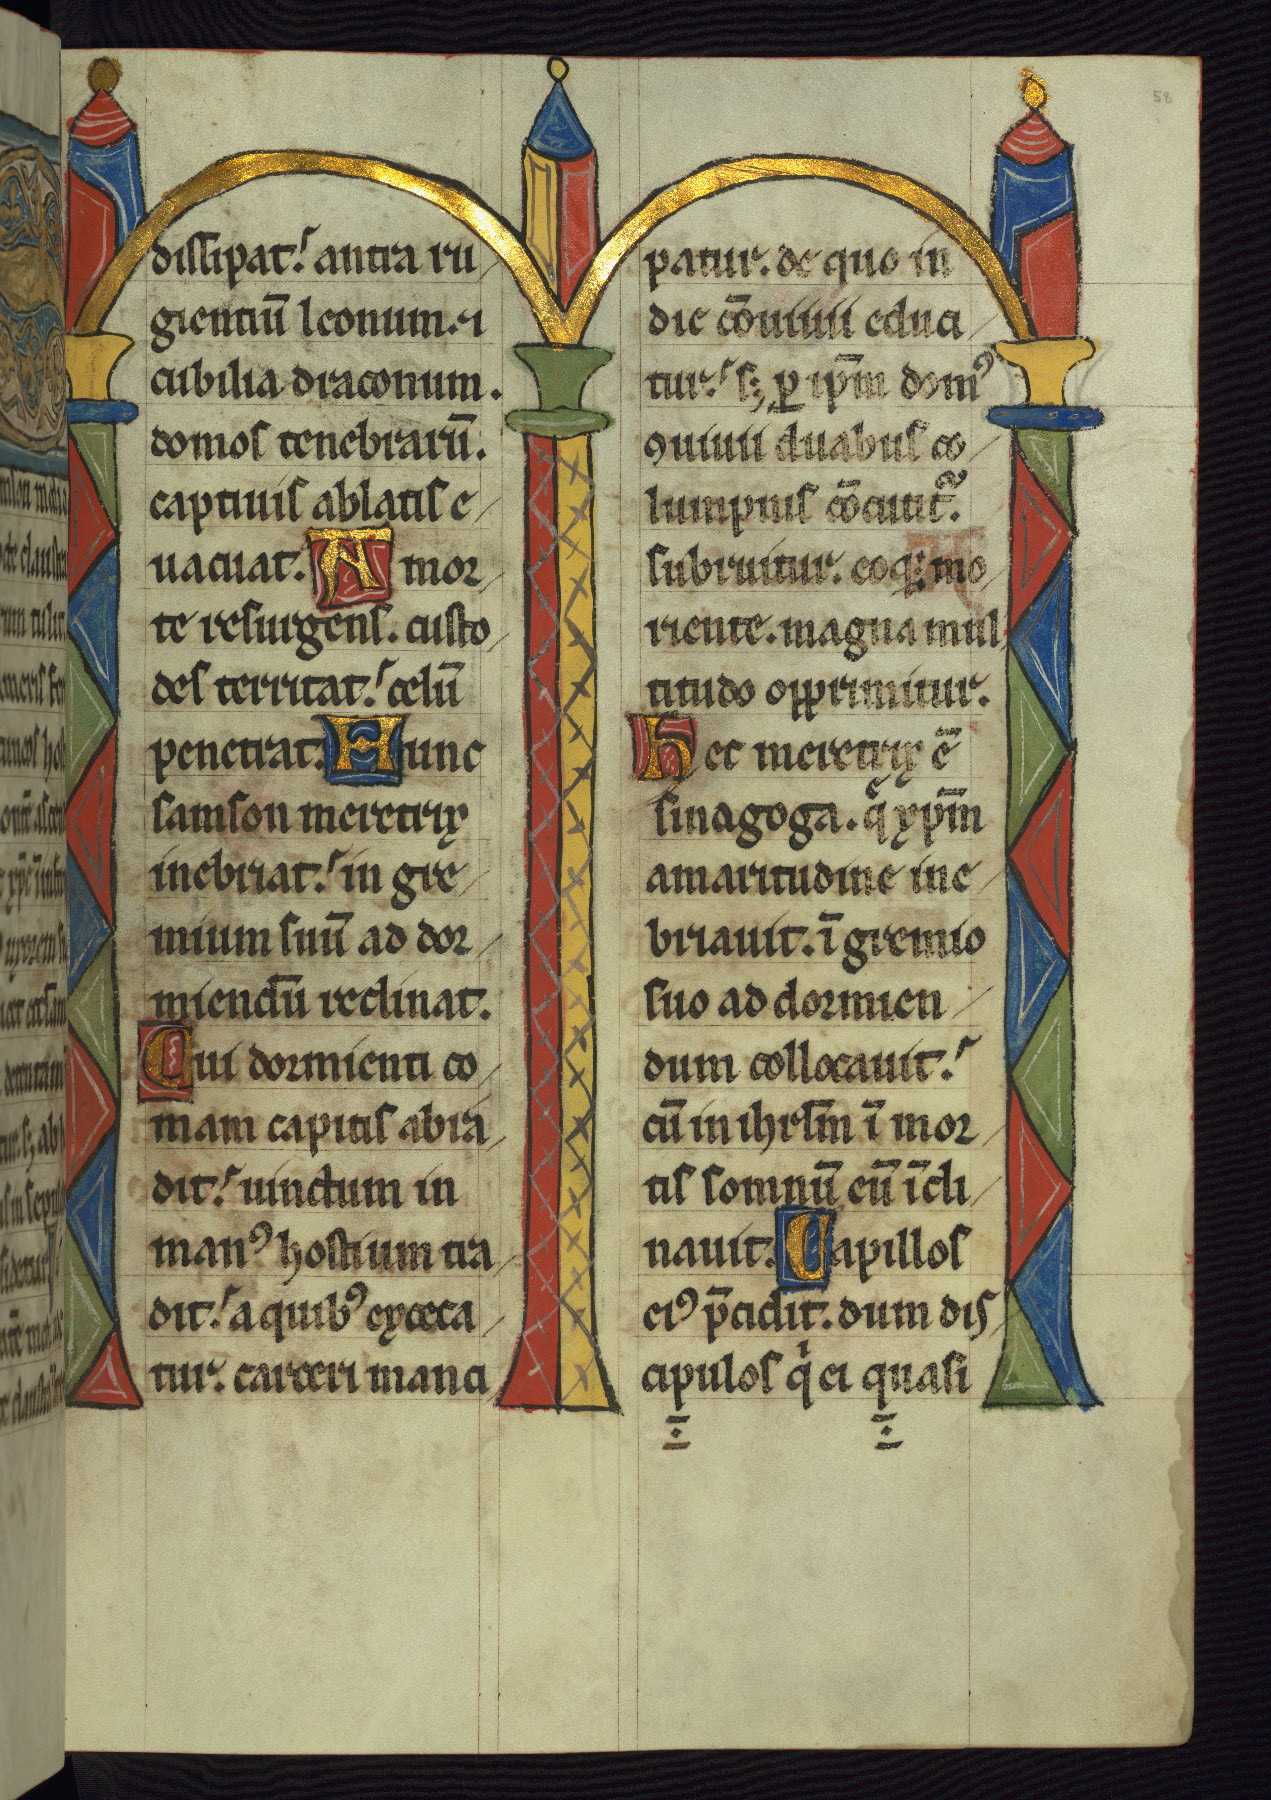 58
dissipat. antra ru
gientiū leonum. ⁊
cubilia draconum.
domos tenebrarū.
captiuis ablatis e
uacuat. A mor
te resurgens. custo
des territat. celū
penetrat. Hunc
samson meretrix
inebriat. in gre
mium suū ad dor
miendū reclinat.
Cui dormienti co
mam capitis abra
dit. uinctum in
manꝰ hostium tra
dit. a quibꝰ exceca
tur. carceri manci
patur. de quo in
die cōuiuii educi
tur. sꝫ ꝑ ip̄m domꝰ
ꝯuiuii duabus co
lumpnis cōcutit᷑.
subruitur. eoqꝫ mo
riente. magna mul
titudo opprimitur.
Hec meretrix ē
sinagoga. q̄ xp̄m
amaritudine ine
briauit. ī gremio
suo ad dormien
dum collocauit.
cū in ihrl̄m ī mor
tis somnū eū īcli
nauit. Capillos
eiꝰ p̄cidit. dum dis
cipulos qͥ ei quasi